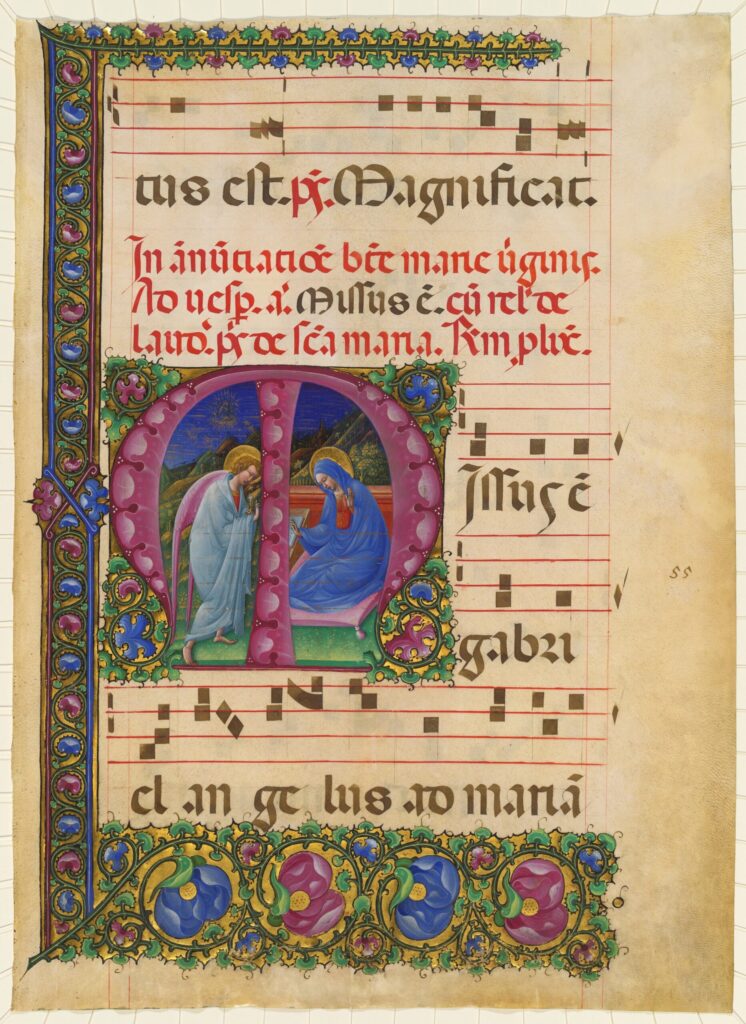 tus est. ps̄. Magnificat.
In ānūtiatiōe btē marie ūginis.
Ad uesp. a. Missus ē. cū rel' de
laud'. ps̄ de scā maria.
MIssus ē
55
gabri
el an ge lus ad mariā